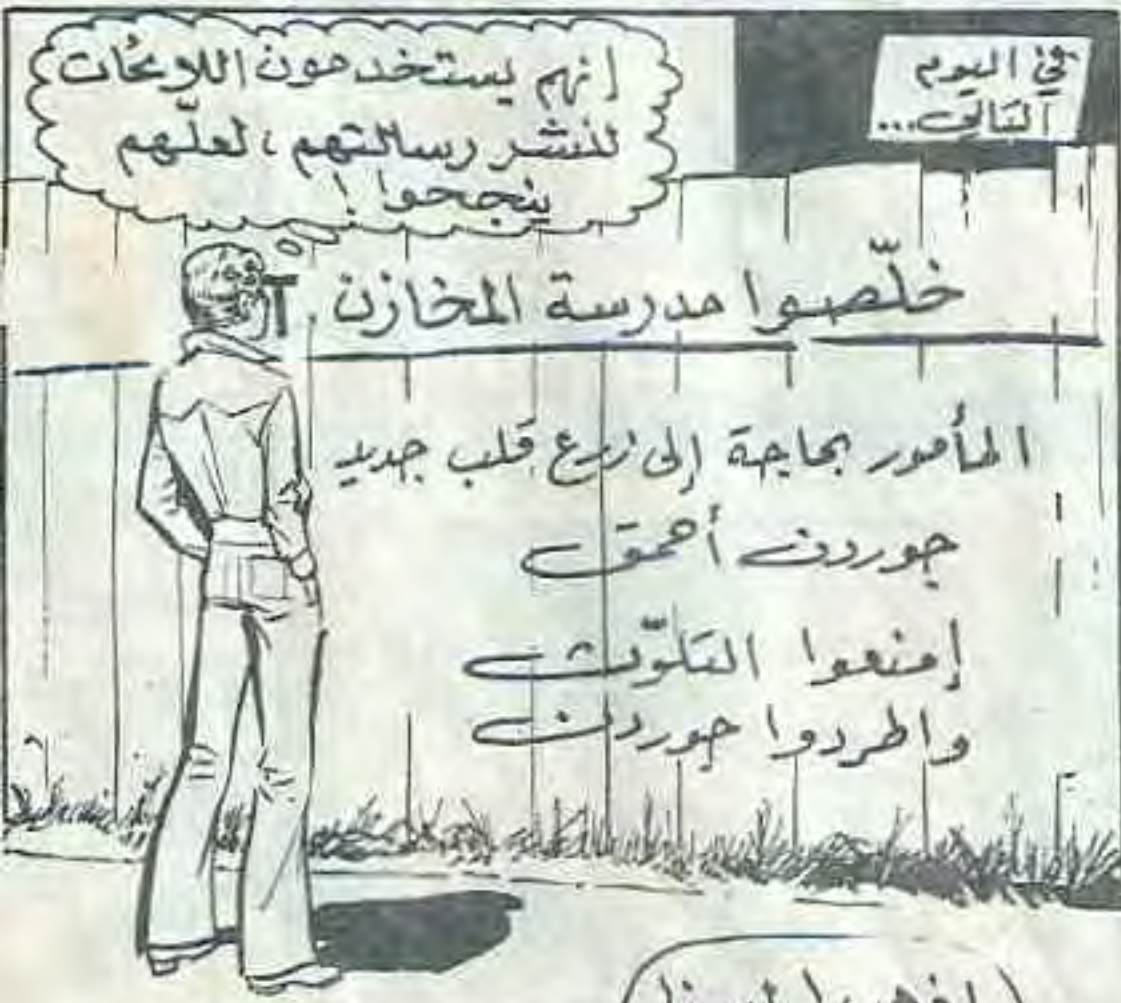 في اليوم
التالي...
إنهم يستخدمون اللوحات
لنشر رسالتهم ، لعلّهم
ينجحوا !
خلّصوا مدرسة المخازن .
المأمور بحاجة إلى زرع قلب جديد
جوردن أحمق
إمنعوا التلوّث
واطردوا جوردن